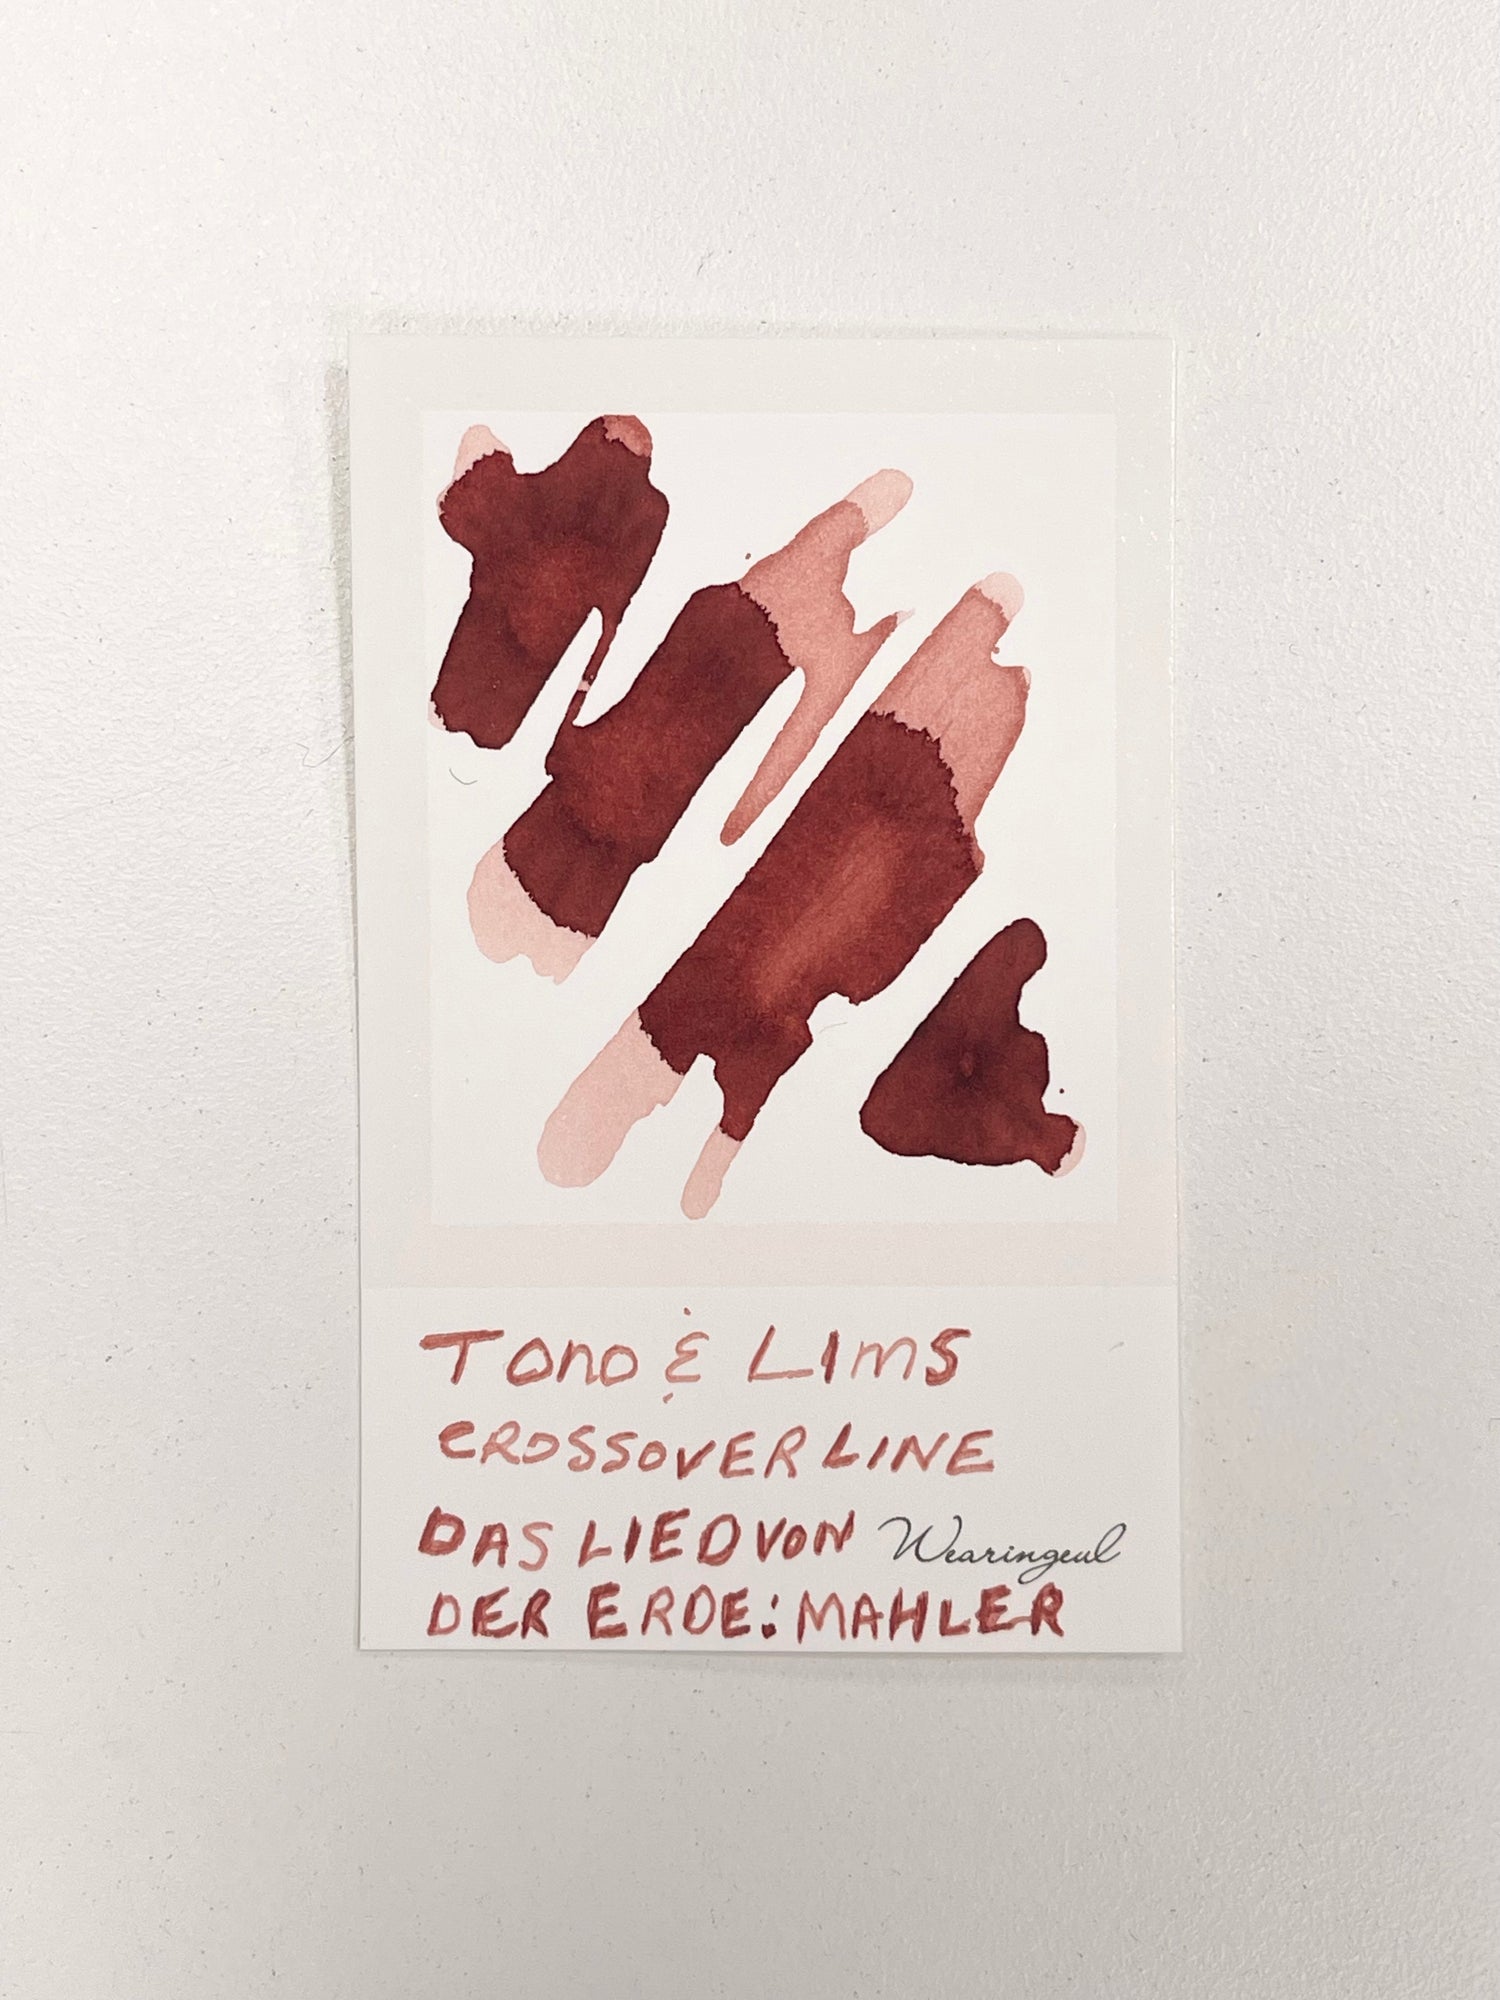 Tono & Lims
CROSSOVER LINE
DAS LIED VON Wearingeul
DER ERDE: MAHLER